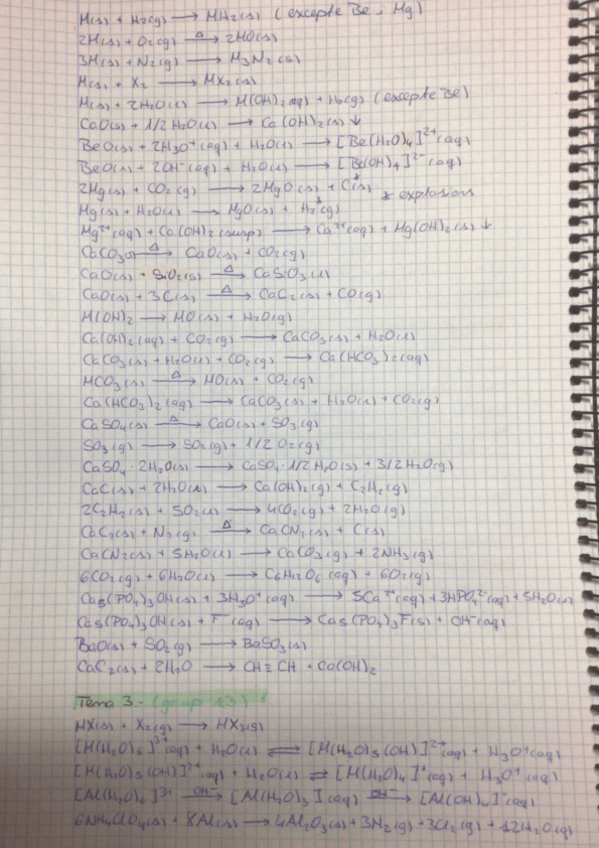 M(s) + H₂(g) → MH₂(s) (excepte Be i Mg)
2M(s) + O₂(g) –Δ→ 2MO(s)
3M(s) + N₂(g) → M₃N₂(s)
M(s) + X₂ → MX₂(s)
M(s) + 2H₂O(l) → M(OH)₂(aq) + H₂(g) (excepte Be)
CaO(s) + 1/2 H₂O(l) → Ca(OH)₂(s)↓
BeO(s) + 2H₃O⁺(aq) + H₂O(l) → [Be(H₂O)₄]²⁺(aq)
BeO(s) + 2OH⁻(aq) + H₂O(l) → [Be(OH)₄]²⁻(aq)
2Mg(s) + CO₂(g) → 2MgO(s) + C(s)* * explosion
Mg(s) + H₂O(l) → MgO(s) + H₂*(g)
Mg²⁺(aq) + Ca(OH)₂(susp) → Ca²⁺(aq) + Mg(OH)₂(s)↓
CaCO₃(s) –Δ→ CaO(s) + CO₂(g)
CaO(s) + SiO₂(s) –Δ→ CaSiO₃(l)
CaO(s) + 3C(s) –Δ→ CaC₂(s) + CO(g)
M(OH)₂ → MO(s) + H₂O(g)
Ca(OH)₂(aq) + CO₂(g) → CaCO₃(s) + H₂O(l)
CaCO₃(s) + H₂O(l) + CO₂(g) → Ca(HCO₃)₂(aq)
MCO₃(s) –Δ→ MO(s) + CO₂(g)
Ca(HCO₃)₂(aq) → CaCO₃(s) + H₂O(l) + CO₂(g)
CaSO₄(s) –Δ→ CaO(s) + SO₃(g)
SO₃(g) → SO₂(g) + 1/2 O₂(g)
CaSO₄·2H₂O(s) → CaSO₄·1/2H₂O(s) + 3/2H₂O(g)
CaC(s) + 2H₂O(l) → Ca(OH)₂(g) + C₂H₂(g)
2C₂H₂(s) + 5O₂(l) → 4CO₂(g) + 2H₂O(g)
CaC₂(s) + N₂(g) –Δ→ CaCN₂(s) + C(s)
CaCN₂(s) + 5H₂O(l) → CaCO₃(g) + 2NH₃(g)
6CO₂(g) + 6H₂O(l) → C₆H₁₂O₆(aq) + 6O₂(g)
Ca₅(PO₄)₃OH(s) + 3H₃O⁺(aq) → 5Ca²⁺(aq) + 3HPO₄²⁻(aq) + 5H₂O(l)
Ca₅(PO₄)₃OH(s) + F⁻(aq) → Ca₅(PO₄)₃F(s) + OH⁻(aq)
BaO(s) + SO₂(g) → BaSO₃(s)
CaC₂(s) + 2H₂O → CH≡CH + Ca(OH)₂
Tema 3.- (grup 13)
MX(s) + X₂(g) → MX₃(g)
[M(H₂O)₆]³⁺(aq) + H₂O(l) ⇌ [M(H₂O)₅(OH)]²⁺(aq) + H₃O⁺(aq)
[M(H₂O)₅(OH)]²⁺(aq) + H₂O(l) ⇌ [M(H₂O)₄]⁺(aq) + H₃O⁺(aq)
[Al(H₂O)₆]³⁺ –OH⁻→ [Al(H₂O)₃](aq) –OH⁻→ [Al(OH)₄]⁻(aq)
6NH₄ClO₄(s) + 8Al(s) → 4Al₂O₃(s) + 3N₂(g) + 3Cl₂(g) + 12H₂O(g)